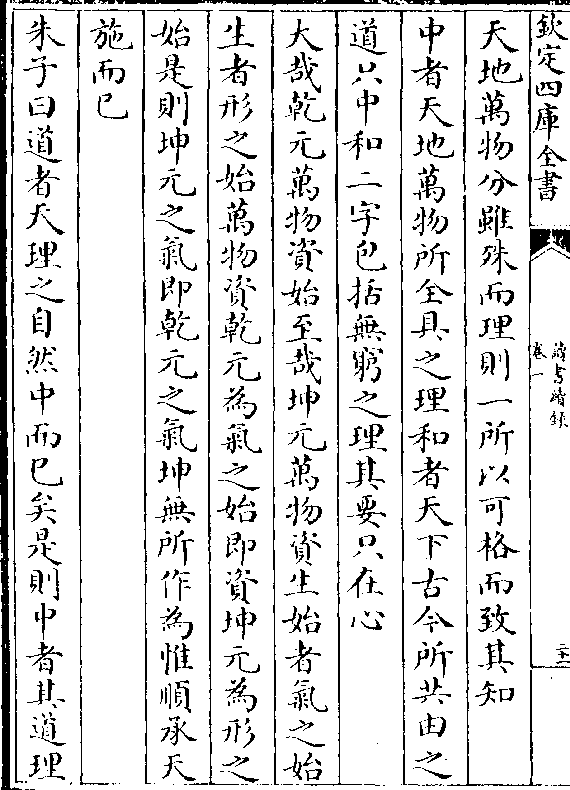 欽定四庫全書
讀書續錄
卷一
天地萬物分雖殊而理則一所以可格而致其知
中者天地萬物所全具之理和者天下古今所共由之
道只中和二字包括無窮之理其要只在心
大哉乾元萬物資始至哉坤元萬物資生始者氣之始
生者形之始萬物資乾元為氣之始即資坤元為形之
始是則坤元之氣即乾元之氣坤無所作為惟順承天
施而已
朱子曰道者天理之自然中而已矣是則中者其道理